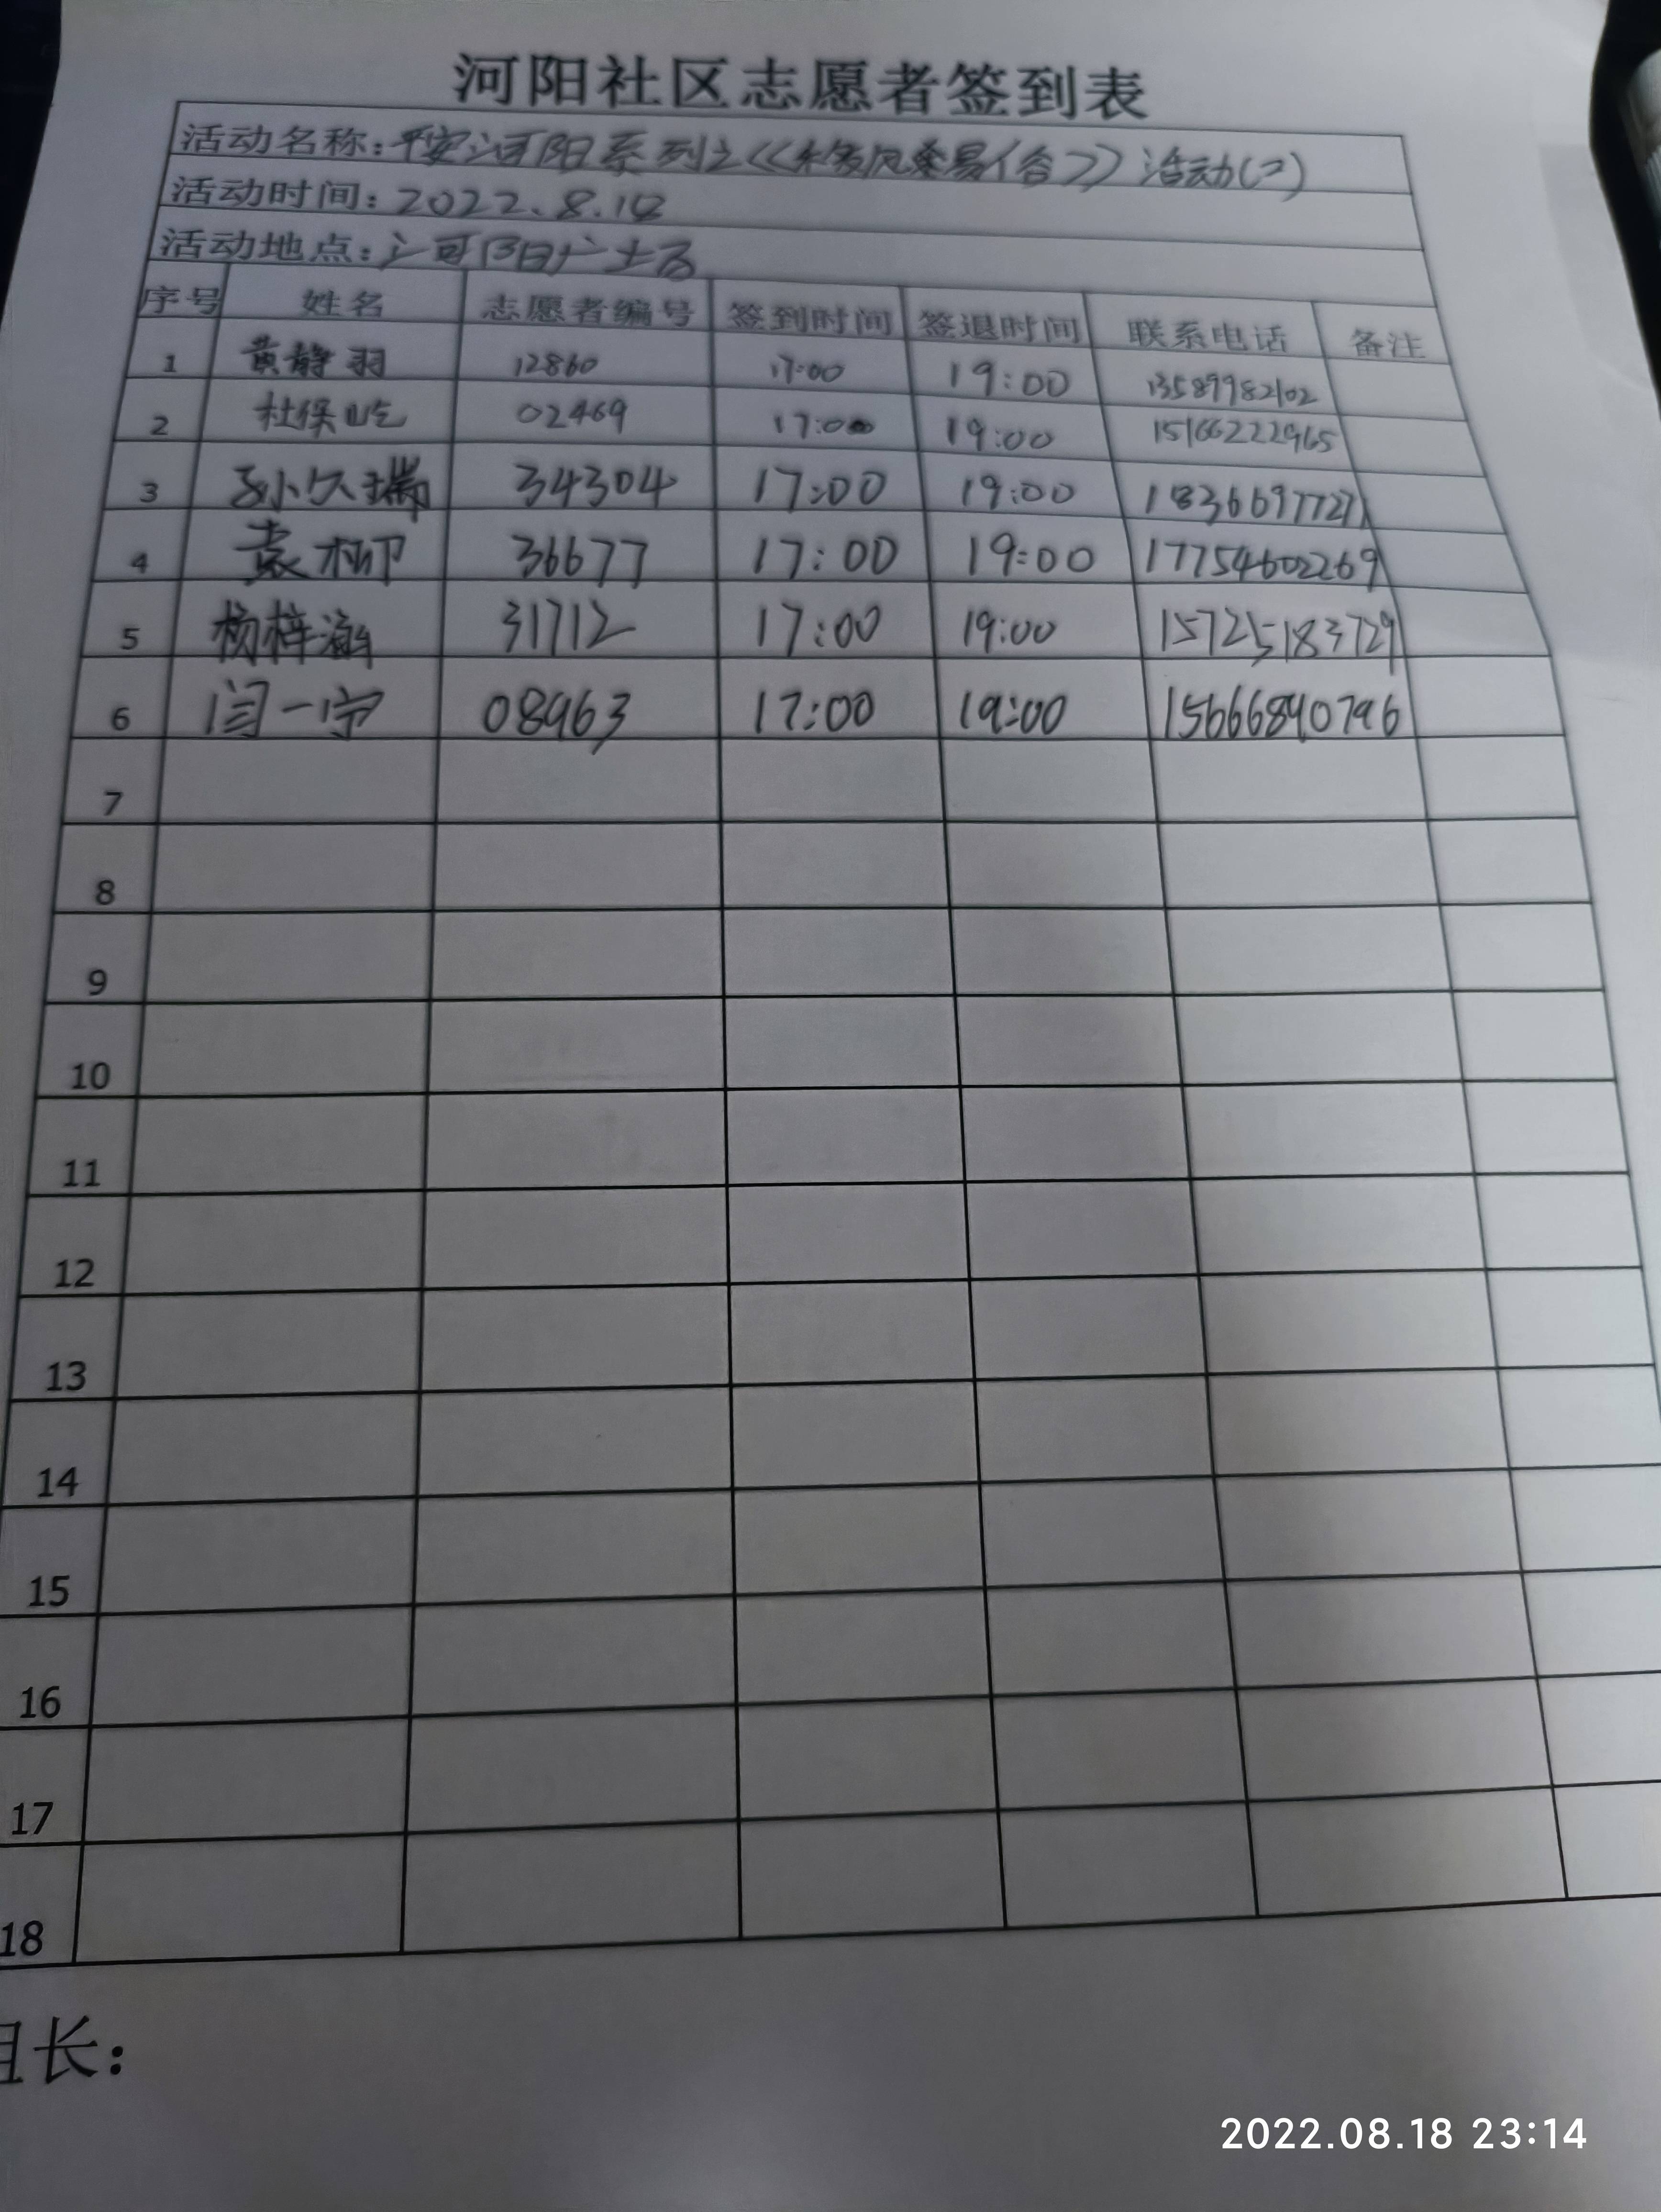 河阳社区志愿者签到表
活动名称：平安河阳系列之《《 》》活动(二)
活动时间：2022.8.18
活动地点：河阳广士方
序号 姓名 志愿者编号 签到时间 签退时间 联系电话 备注
1 黄静羽 12860 17:00 19:00 13589982102
2 杜保屹 02469 17:00 19:00 15166222965
3 孙久瑞 34304 17:00 19:00 18366977271
4 袁柳 36677 17:00 19:00 17754602269
5 杨梓涵 31712 17:00 19:00 15725183729
6 闫一宁 08963 17:00 19:00 15666840796
7
8
9
10
11
12
13
14
15
16
17
18
组长：
2022.08.18 23:14